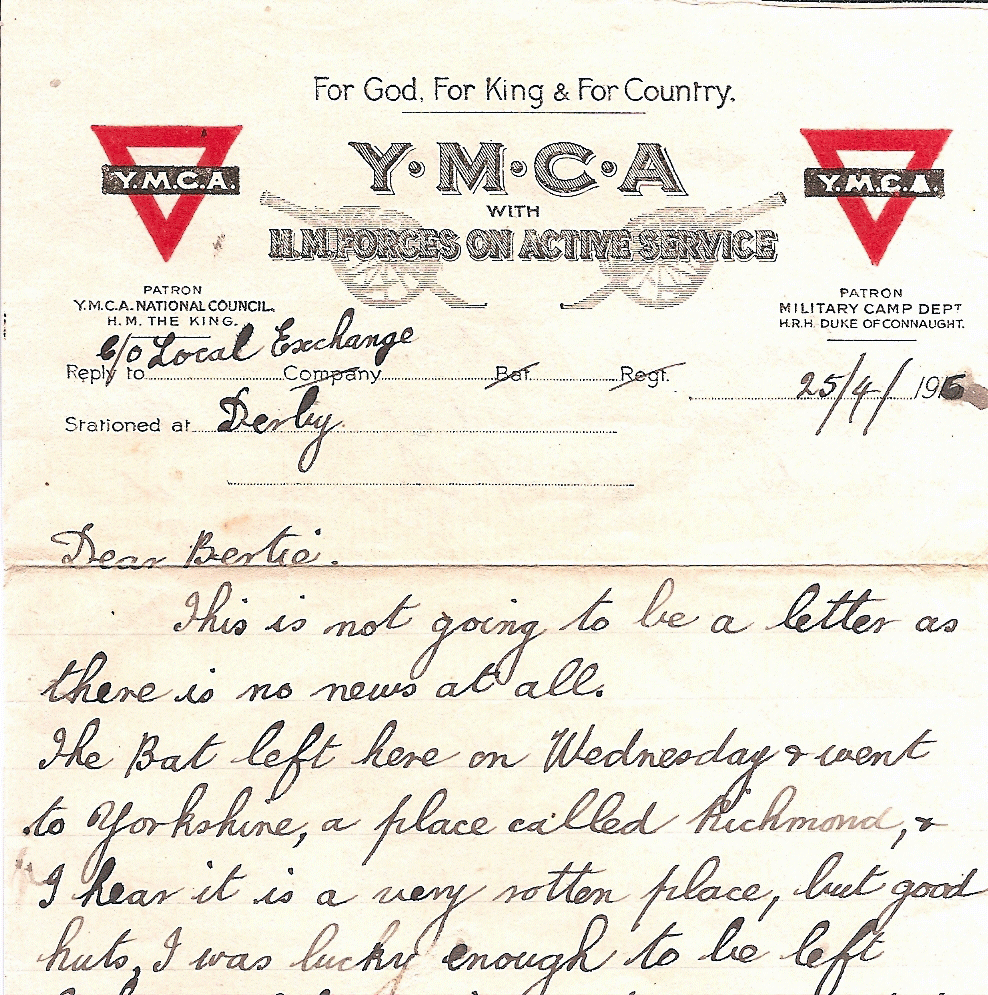 For God, For King & For Country.
Y.M.C.A
WITH
H.M. FORCES ON ACTIVE SERVICE
Y.M.C.A.
Y.M.C.A.
PATRON
Y.M.C.A. NATIONAL COUNCIL.
H.M. THE KING.
PATRON
MILITARY CAMP DEPT
H.R.H. DUKE OF CONNAUGHT.
c/o Local Exchange
Reply to Company Bat. Regt.
25/4/ 1915
Stationed at Derby
Dear Bertie.
This is not going to be a letter as
there is no news at all.
The Bat left here on Wednesday & went
to Yorkshire, a place called Richmond, &
I hear it is a very rotten place, but good
huts, I was lucky enough to be left